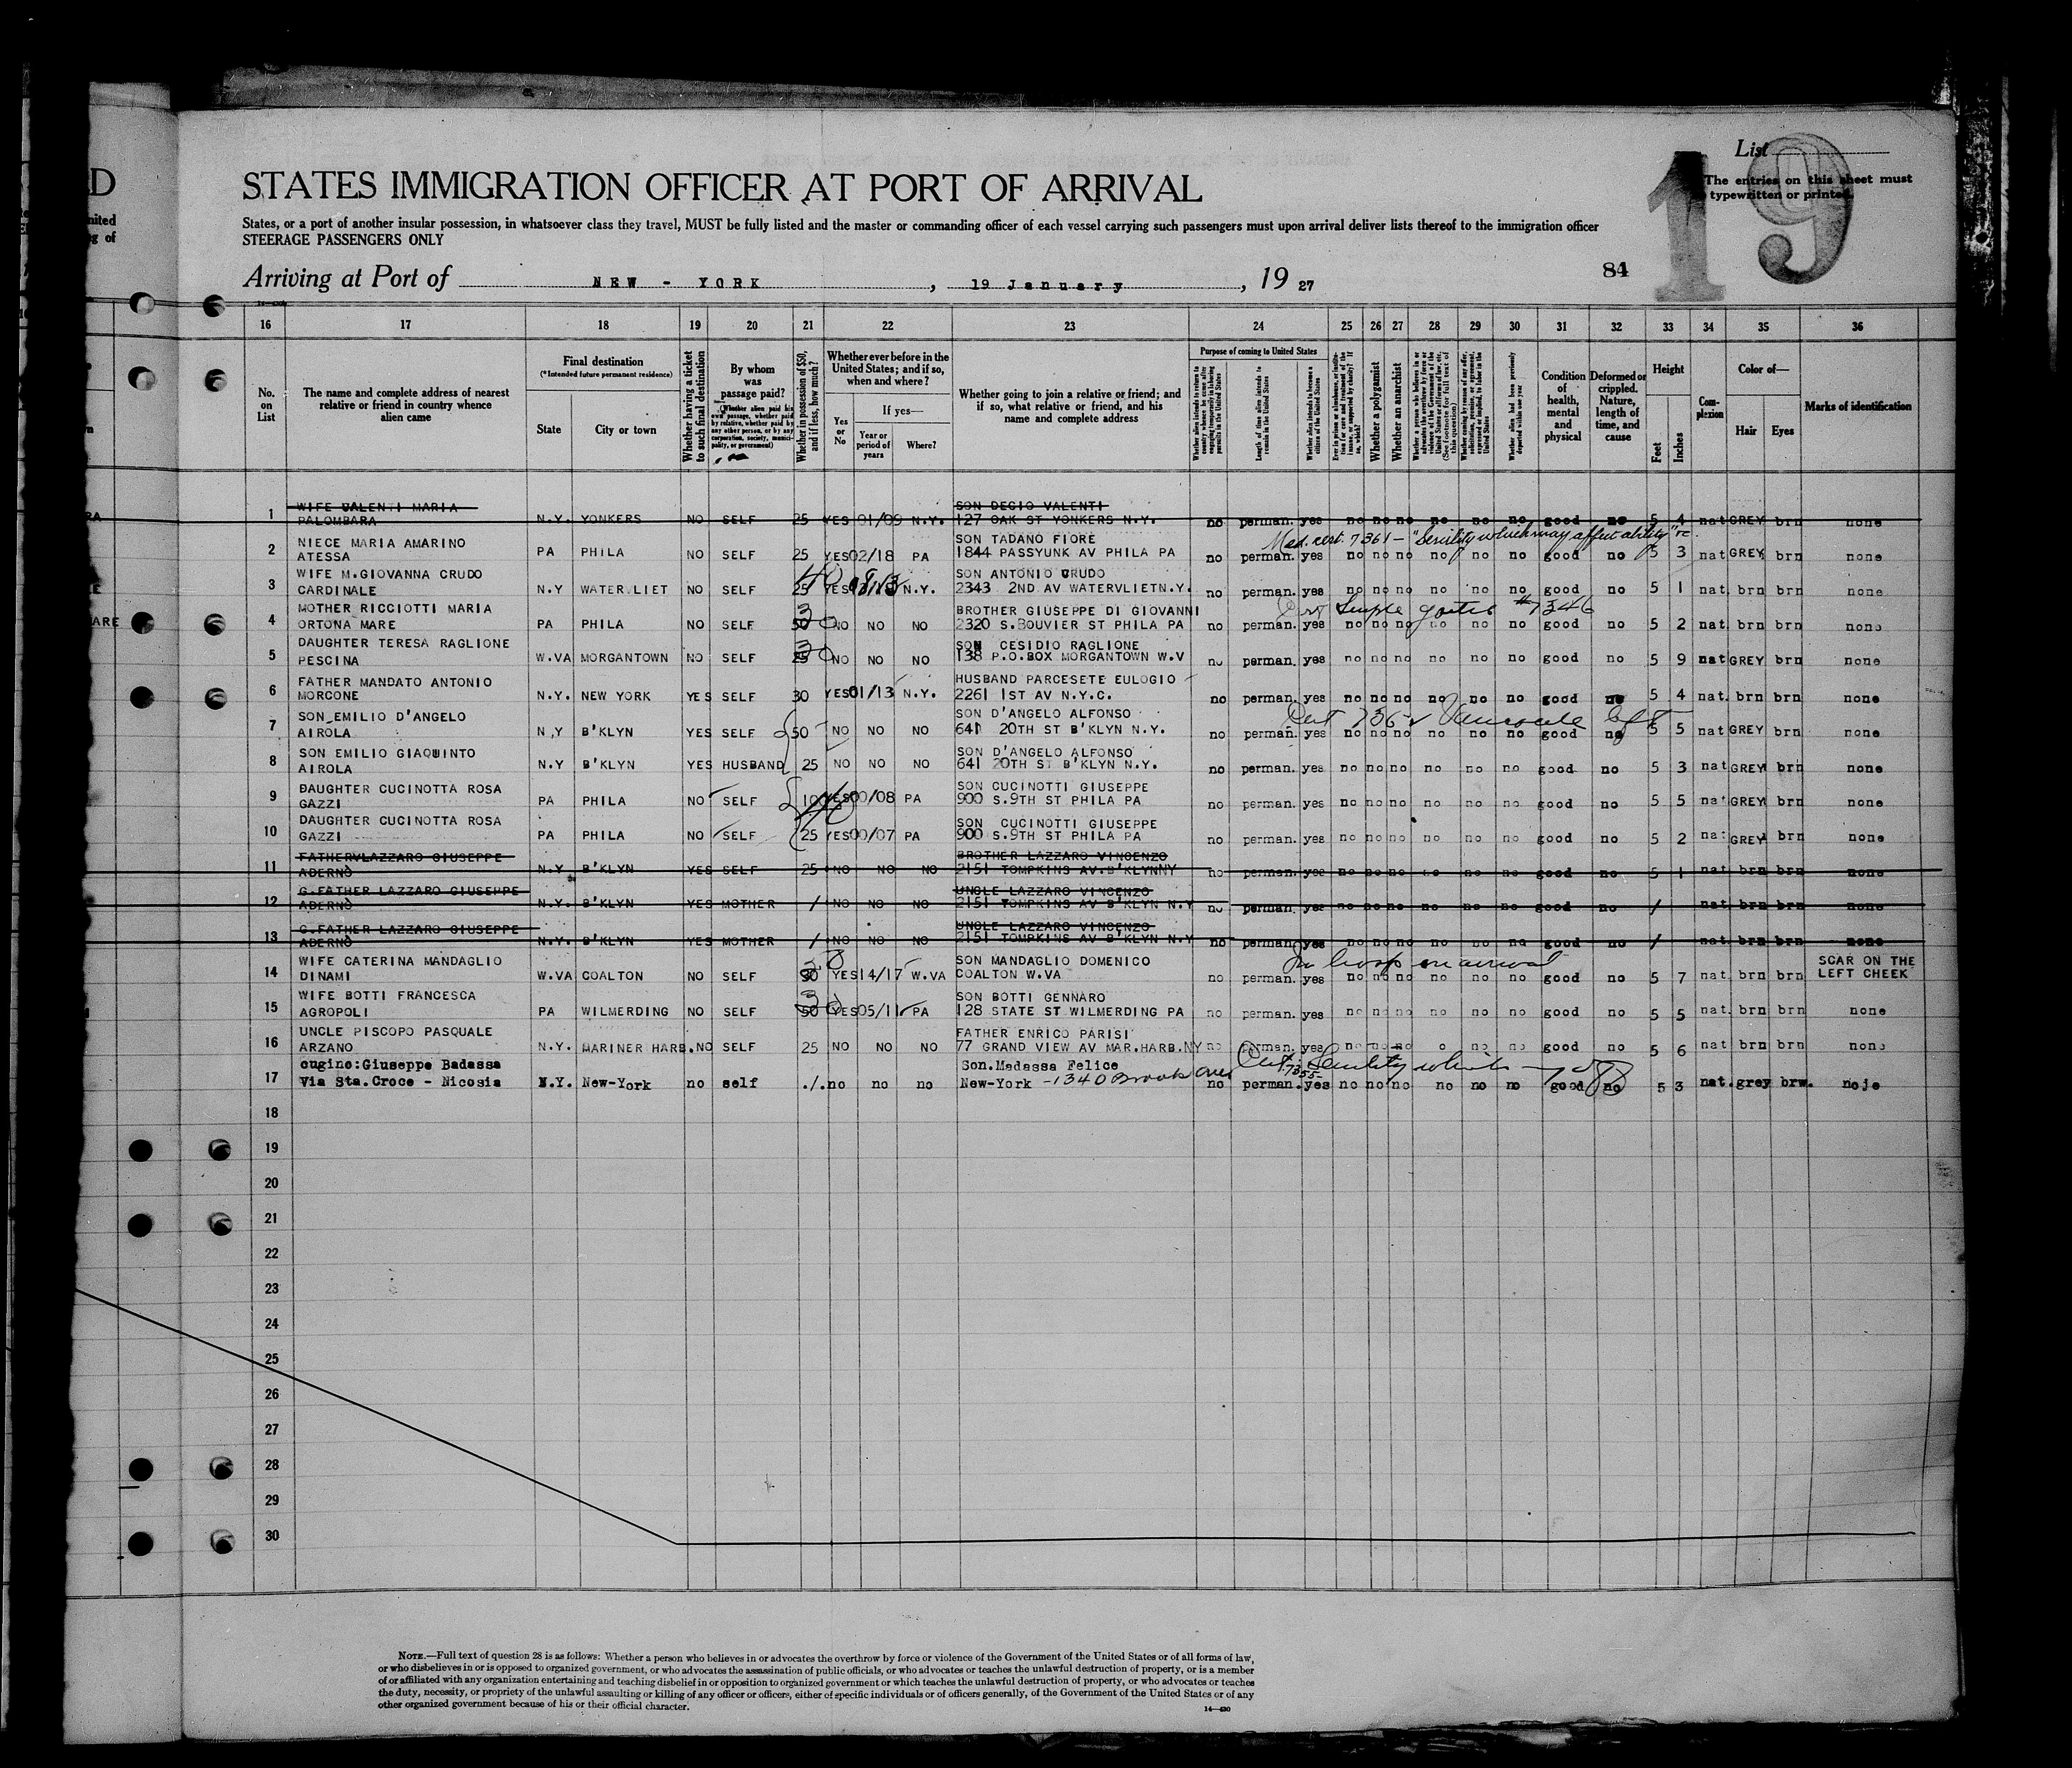 List
19
The entries on this sheet must
typewritten or printed.
D
STATES IMMIGRATION OFFICER AT PORT OF ARRIVAL
nited
g of
States, or a port of another insular possession, in whatsoever class they travel, MUST be fully listed and the master or commanding officer of each vessel carrying such passengers must upon arrival deliver lists thereof to the immigration officer
STEERAGE PASSENGERS ONLY
Arriving at Port of NEW - YORK , 19 January , 19 27
84
16 17 18 19 20 21 22 23 24 25 26 27 28 29 30 31 32 33 34 35 36
No. on List
The name and complete address of nearest relative or friend in country whence alien came
Final destination
(*Intended future permanent residence)
State
City or town
Whether having a ticket to such final destination
By whom was passage paid?
(Whether alien paid his own passage, whether paid by relative, whether paid by any other person, or by any corporation, society, municipality, or government)
Whether in possession of $50, and if less, how much?
Whether ever before in the United States; and if so, when and where?
Yes or No
If yes—
Year or period of years
Where?
Whether going to join a relative or friend; and if so, what relative or friend, and his name and complete address
Purpose of coming to United States
Length of time alien intends to remain in the United States
Whether alien intends to become a citizen of the United States
Whether a polygamist
Whether an anarchist
Condition of health, mental and physical
Deformed or crippled. Nature, length of time, and cause
Height
Feet
Inches
Complexion
Color of—
Hair
Eyes
Marks of identification
1 WIFE VALENTI MARIA SON DECIO VALENTI
PALOMBARA N.Y. YONKERS NO SELF 25 YES 01/09 N.Y. 127 OAK ST YONKERS N.Y. no perman. yes no no no no no no good no 5 4 nat GREY brn none
Med. cert. 7361 - "Senility which may affect ability" rc.
2 NIECE MARIA AMARINO SON TADANO FIORE
ATESSA PA PHILA NO SELF 25 YES 02/18 PA 1844 PASSYUNK AV PHILA PA no perman. yes no no no no no no good no 5 3 nat GREY brn none
3 WIFE M.GIOVANNA CRUDO SON ANTONIO CRUDO
CARDINALE N.Y WATER.LIET NO SELF 25 40 YES N.Y. 2343 2ND AV WATERVLIETN.Y. no perman. yes no no no no no no good no 5 1 nat. brn brn none
Simple goiter #7346
4 MOTHER RICCIOTTI MARIA BROTHER GIUSEPPE DI GIOVANNI
ORTONA MARE PA PHILA NO SELF 50 30 NO NO NO 2320 S.BOUVIER ST PHILA PA no perman. yes no no no no no no good no 5 2 nat. brn brn none
5 DAUGHTER TERESA RAGLIONE SON CESIDIO RAGLIONE
PESCINA W.VA MORGANTOWN NO SELF 25 30 NO NO NO 138 P.O.BOX MORGANTOWN W.V no perman. yes no no no no no no good no 5 9 nat GREY brn none
6 FATHER MANDATO ANTONIO HUSBAND PARCESETE EULOGIO
MORCONE N.Y. NEW YORK YES SELF 30 YES 01/13 N.Y. 2261 1ST AV N.Y.C. no perman. yes no no no no no no good no 5 4 nat. brn brn none
left
7 SON EMILIO D'ANGELO SON D'ANGELO ALFONSO
AIROLA N,Y B'KLYN YES SELF 50 NO NO NO 641 20TH ST B'KLYN N.Y. no perman. yes no no no no no no good no 5 5 nat GREY brn none
8 SON EMILIO GIAQUINTO SON D'ANGELO ALFONSO
AIROLA N.Y B'KLYN YES HUSBAND 25 NO NO NO 641 20TH ST B'KLYN N.Y. no perman. yes no no no no no no good no 5 3 nat GREY brn none
9 DAUGHTER CUCINOTTA ROSA SON CUCINOTTI GIUSEPPE
GAZZI PA PHILA NO SELF YES 00/08 PA 900 S.9TH ST PHILA PA no perman. yes no no no no no no good no 5 5 nat GREY brn none
10 DAUGHTER CUCINOTTA ROSA SON CUCINOTTI GIUSEPPE
GAZZI PA PHILA NO SELF 25 YES 00/07 PA 900 S.9TH ST PHILA PA no perman. yes no no no no no no good no 5 2 nat GREY brn none
11 FATHERVLAZZARO GIUSEPPE BROTHER LAZZARO VINCENZO
ADERNO N.Y. B'KLYN YES SELF 25 NO NO NO 2151 TOMPKINS AV.B'KLYNNY no perman. yes no no no no no no good no 5 1 nat brn brn none
12 G.FATHER LAZZARO GIUSEPPE UNCLE LAZZARO VINCENZO
ADERNO N.Y. B'KLYN YES MOTHER / NO NO NO 2151 TOMPKINS AV B'KLYN N.Y no perman. yes no no no no no no good no / nat. brn brn none
13 G.FATHER LAZZARO GIUSEPPE UNCLE LAZZARO VINCENZO
ADERNO N.Y. B'KLYN YES MOTHER / NO NO NO 2151 TOMPKINS AV B'KLYN N.Y no perman. yes no no no no no no good no / nat. brn brn none
In hosp on arrival
14 WIFE CATERINA MANDAGLIO SON MANDAGLIO DOMENICO SCAR ON THE
DINAMI W.VA COALTON NO SELF YES 14/17 W.VA COALTON W.VA no perman. yes no no no no no no good no 5 7 nat. brn brn LEFT CHEEK
15 WIFE BOTTI FRANCESCA SON BOTTI GENNARO
AGROPOLI PA WILMERDING NO SELF 50 30 YES 05/11 PA 128 STATE ST WILMERDING PA no perman. yes no no no no no no good no 5 5 nat. brn brn none
16 UNCLE PISCOPO PASQUALE FATHER ENRICO PARISI
ARZANO N.Y. MARINER HARB. NO SELF 25 NO NO NO 77 GRAND VIEW AV MAR.HARB.NY no perman. yes no no no o no no good no 5 6 nat brn brn none
Senility which
17 cugino:Giuseppe Badassa Son.Madassa Felice
Via Sta.Croce - Nicosia N.Y. New-York no self ./. no no no New-York - 1340 Brook Ave no perman. yes no no no no no no good no 5 3 nat. grey brw. noje
18
19
20
21
22
23
24
25
26
27
28
29
30
NOTE.—Full text of question 28 is as follows: Whether a person who believes in or advocates the overthrow by force or violence of the Government of the United States or of all forms of law,
or who disbelieves in or is opposed to organized government, or who advocates the assassination of public officials, or who advocates or teaches the unlawful destruction of property, or is a member
of or affiliated with any organization entertaining and teaching disbelief in or opposition to organized government or which teaches the unlawful destruction of property, or who advocates or teaches
the duty, necessity, or propriety of the unlawful assaulting or killing of any officer or officers, either of specific individuals or of officers generally, of the Government of the United States or of any
other organized government because of his or their official character.
14—430